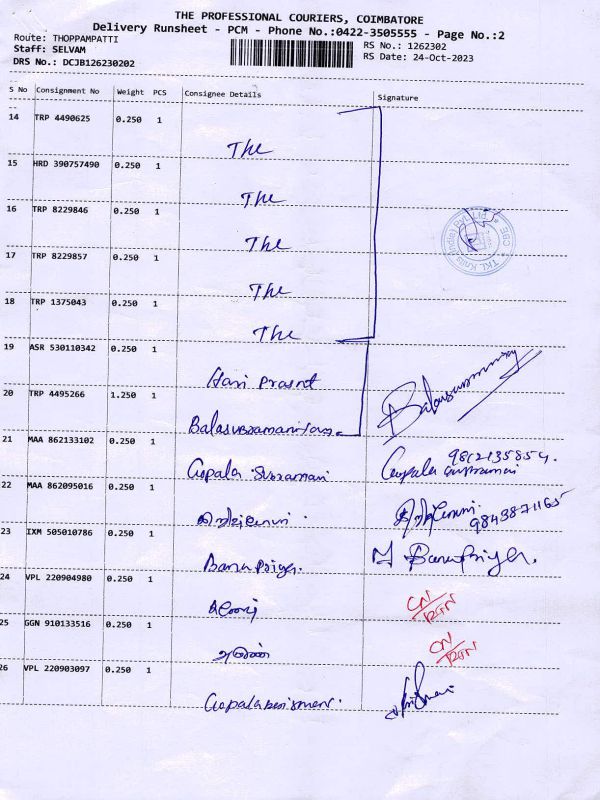 THE PROFESSIONAL COURIERS, COIMBATORE
Delivery Runsheet - PCM - Phone No.:0422-3505555 - Page No.:2
Route: THOPPAMPATTI
RS No.: 1262302
Staff: SELVAM
RS Date: 24-Oct-2023
DRS No.: DCJB126230202
S No Consignment No Weight PCS Consignee Details Signature
14 TRP 4490625 0.250 1
The
15 HRD 390757490 0.250 1
The
16 TRP 8229846 0.250 1
The
17 TRP 8229857 0.250 1
The
18 TRP 1375043 0.250 1
The
19 ASR 530110342 0.250 1
Hari Prasat
20 TRP 4495266 1.250 1
21 MAA 862133102 0.250 1
Gopala
22 MAA 862095016 0.250 1
9843871165
23 IXM 505010786 0.250 1
Banu Priya. Banu Priya.
24 VPL 220904980 0.250 1
CN/RTN
25 GGN 910133516 0.250 1
CN/RTN
26 VPL 220903097 0.250 1